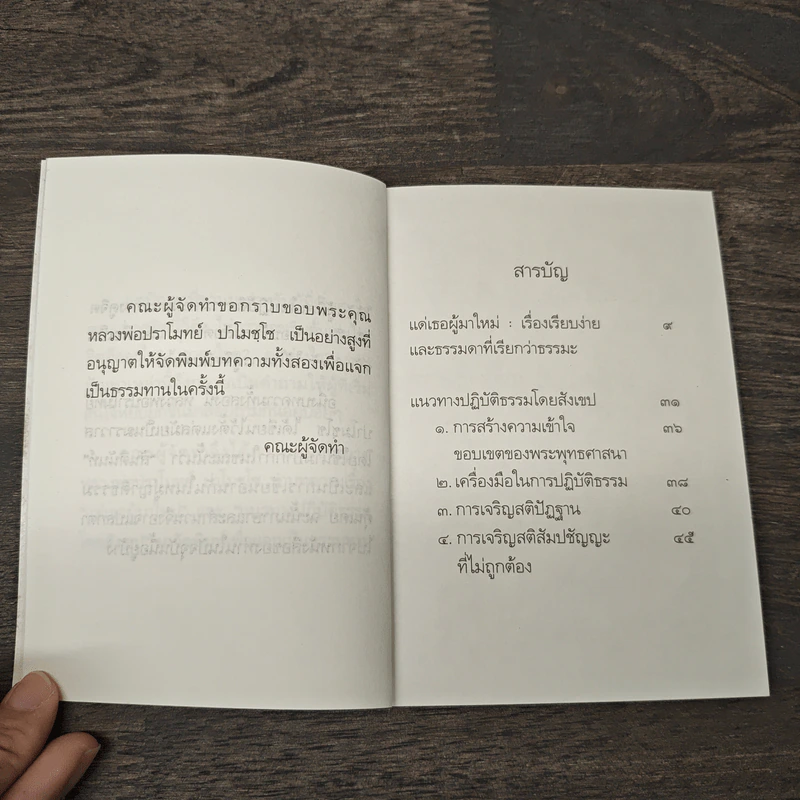 คณะผู้จัดทำขอกราบขอบพระคุณ
หลวงพ่อปราโมทย์ ปาโมชฺโช เป็นอย่างสูงที่
อนุญาตให้จัดพิมพ์บทความทั้งสองเพื่อแจก
เป็นธรรมทานในครั้งนี้
คณะผู้จัดทำ
สารบัญ
แด่เธอผู้มาใหม่ : เรื่องเรียบง่าย ๙
และธรรมดาที่เรียกว่าธรรมะ
แนวทางปฏิบัติธรรมโดยสังเขป ๓๑
๑. การสร้างความเข้าใจ ๓๖
ขอบเขตของพระพุทธศาสนา
๒. เครื่องมือในการปฏิบัติธรรม ๓๘
๓. การเจริญสติปัฏฐาน ๔๐
๔. การเจริญสติสัมปชัญญะ ๔๕
ที่ไม่ถูกต้อง